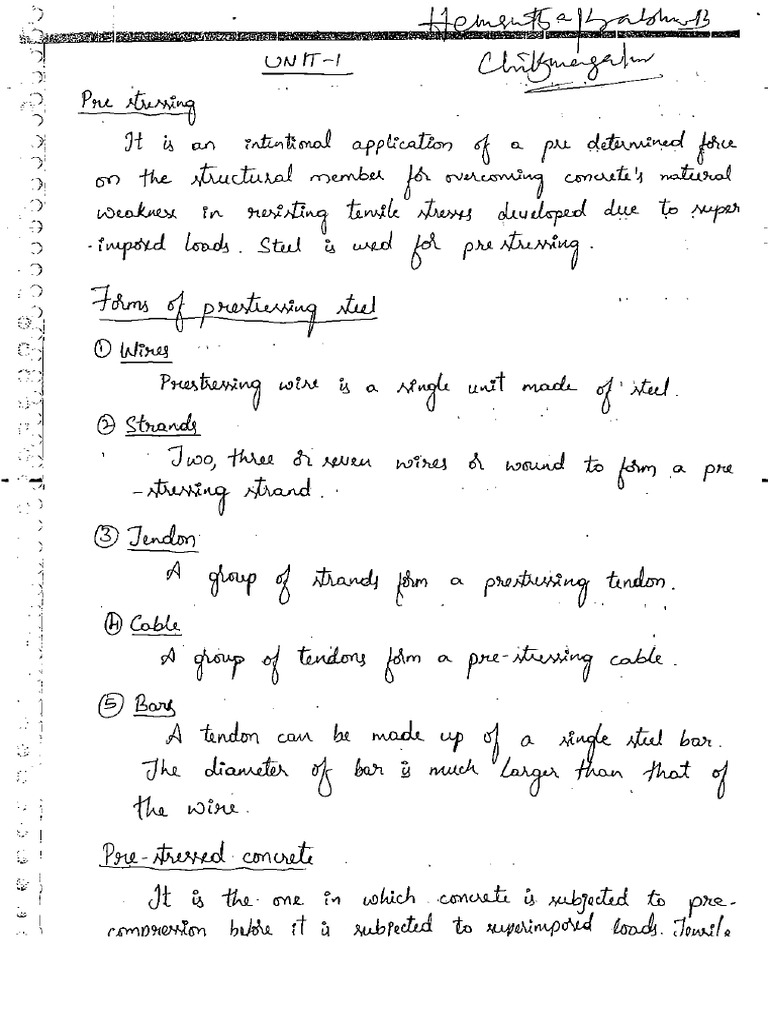 UNIT-1
Pre stressing
It is an intentional application of a pre determined force
on the structural member for overcoming concrete's natural
weakness in resisting tensile stresses developed due to super
-imposed loads. Steel is used for pre stressing.
Forms of prestressing steel
① Wires
Prestressing wire is a single unit made of steel.
② Strands
Two, three or seven wires or wound to form a pre
-stressing strand.
③ Tendon
A group of strands form a prestressing tendon.
④ Cable
A group of tendons form a pre-stressing cable.
⑤ Bars
A tendon can be made up of a single steel bar.
The diameter of bar is much larger than that of
the wire.
Pre-stressed concrete
It is the one in which concrete is subjected to pre-
compression before it is subjected to superimposed loads. Tensile